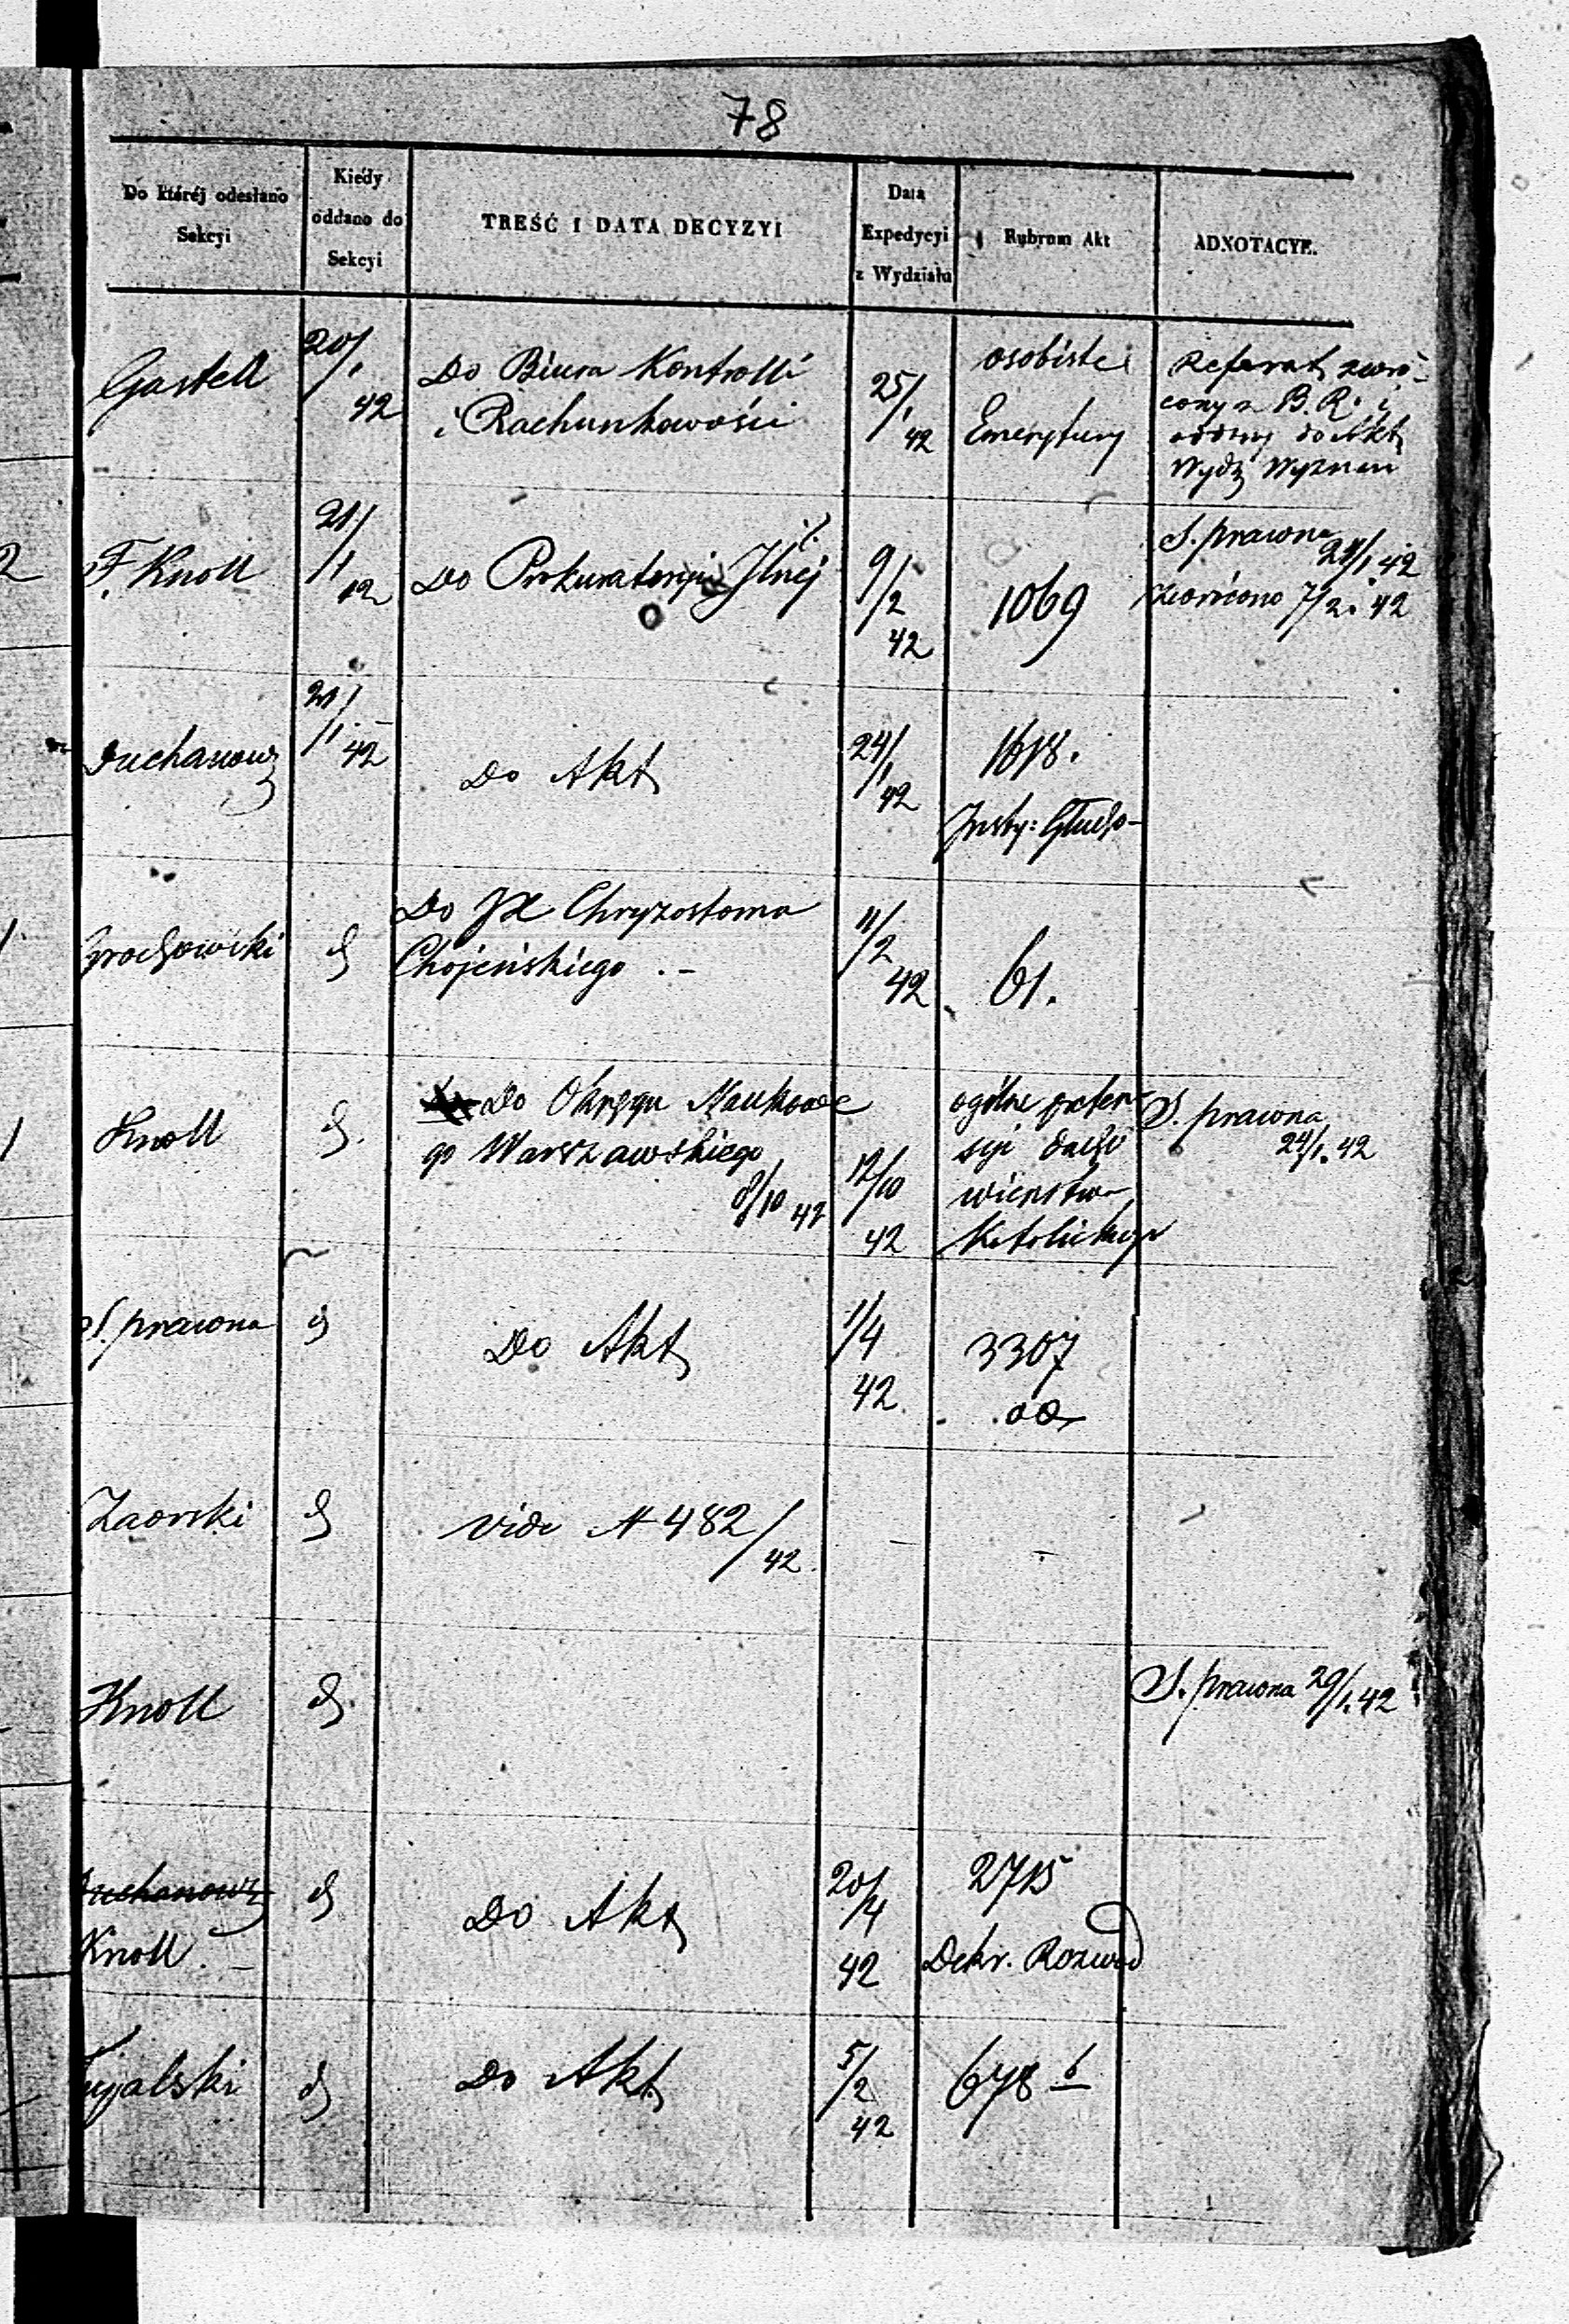 78
Do któréj odesłano Sekcyi
Kiedy oddano do Sekcyi
TREŚĆ I DATA DECYZYI
Data Expedycyi z Wydziału
Rubrum Akt
ADNOTACYE.
Gastell
20/1 42
Do Biura Kontrolli
i Rachunkowości
25/1 42
osobiste
Emerytury
Referat zwró-
cony z B. R. i
do Akt
Wydz Wyznań
F. Knoll
21/1 42
Do Prokuratoryi Jlnej
9/2 42
1069
S. prawna 24/1. 42
zwrócono 7/2. 42
Suchanow
21/1 42
Do Akt
24/1 42
1618.
Insty: Głucho-
Grochowski
d
Do JX Chryzostoma
Chojeńskiego . -
11/2 42
61.
Knoll
d.
Do Okręgu Naukowe
go Warszawskiego
8/10 42
12/10 42
ogólne preten-
syi Ducho
wieństwa
Katolickiego
S. prawna
24/1. 42
S. prawna
d
Do Akt
1/4 42
3307
aa
Zaorski
d
vide N 482/42.
-
-
Knoll
d.
S. prawna 29/1. 42
Suchanow
Knoll. -
d
Do Akt
20/4 42
2715
Dekr. Rozwod
ujalski
d
Do Akt
5/2 42
678 b